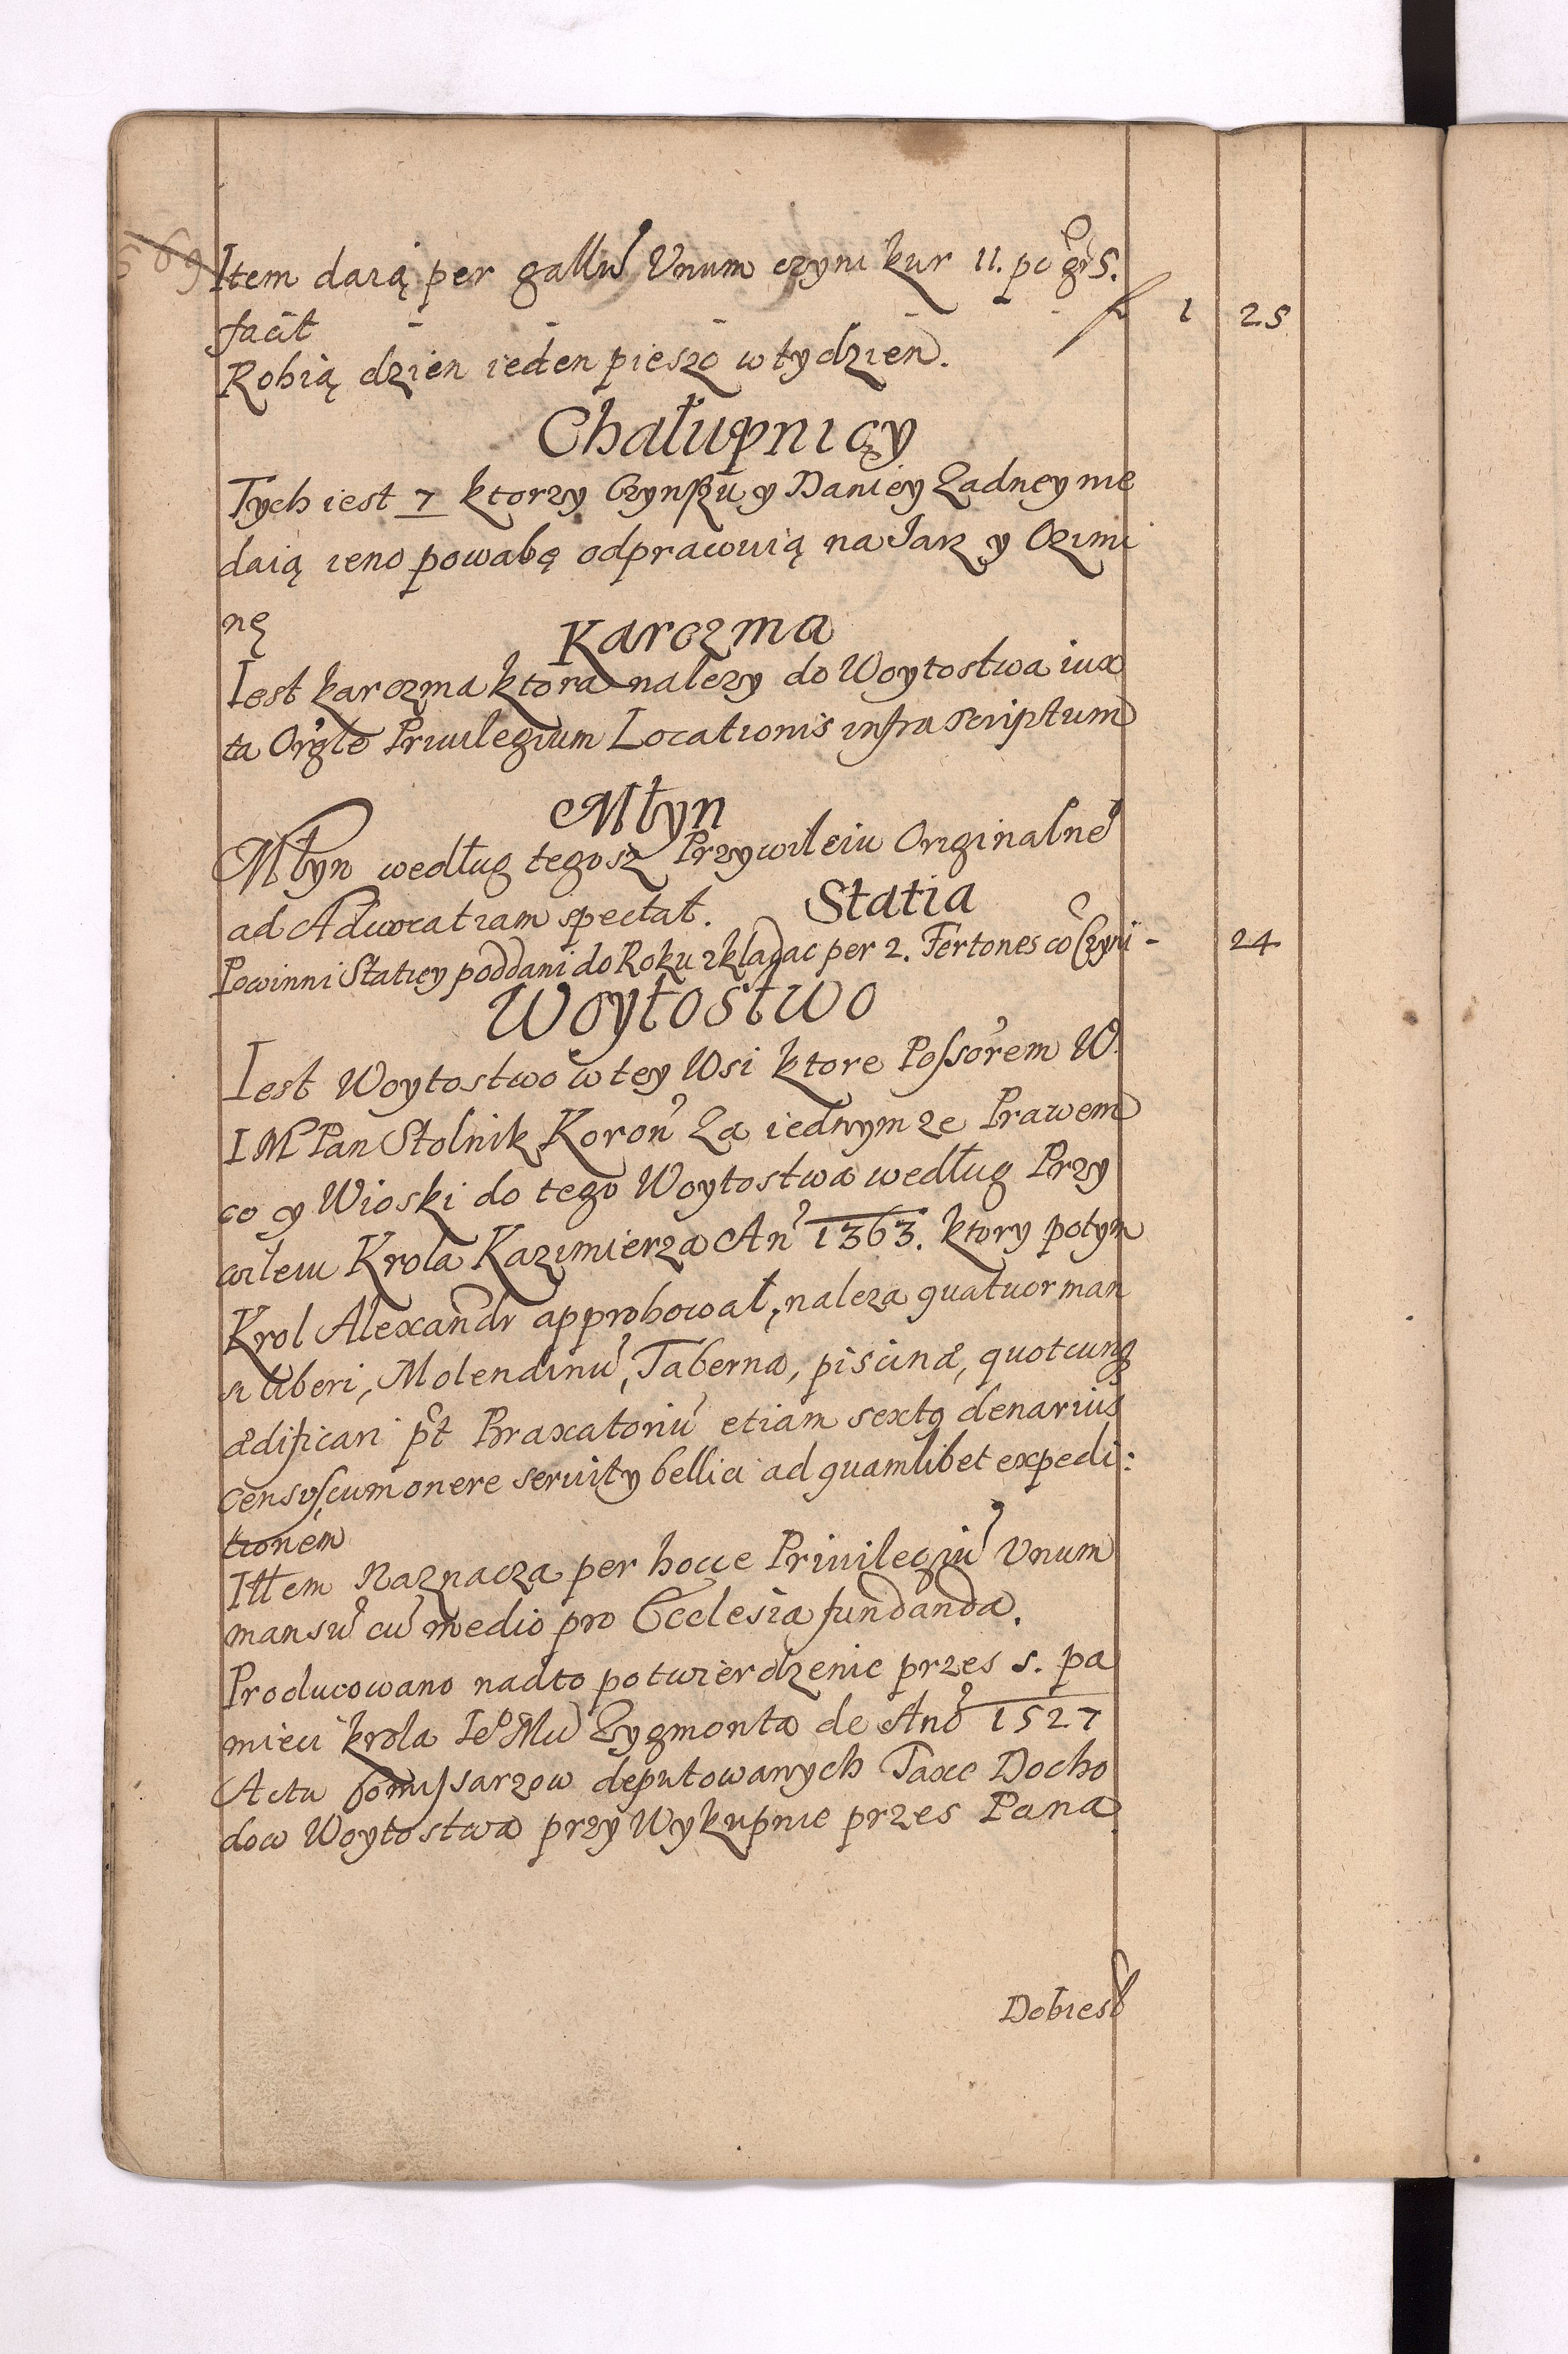 569
Item daią per gallu Unum czyni kur 11. po gr 5.
facit - - - - - f 1 25
Robią dzien ieden pieszo w tydzien.
Chałupnicy
Tych iest 7 ktorzy Czynszu y Daniey Zadney nie
daią ieno powabę odprawuią na Jarz y Ozimi
nę
Karczma
Iest karczma ktora nalezy do Woytostwa iux
ta Orgle Priuilegium Locationis infra scriptum
Młyn
Młyn według tegosz Przywileiu Originalne
ad Aduocatiam spectat. Statia
Powinni Statiey poddani do Roku zkładac per 2. Fertones co Czyni - 24
Woytostwo
Iest Woytostwo w tey Wsi ktore Possorem W.
I M Pan Stolnik Koron Za iednym ze Prawem
co y Wioski do tego Woytostwa według Przy
wileiu Krola Kazimierza An 1363. ktory potym
Krol Alexandr approbował, naleza quatuor man
si liberi, Molendinu, Taberna, piscina, quotcunq
ædificari pt Braxatoriu etiam sextq denarius
censuscum onere seruity bellici ad quamlibet expedi:
tionem
Ittem Naznacza per hocce Priuilegiu Unum
mansu cu medio pro Ecclesia fundanda.
Producowano nadto potwierdzenie przes s. pa
mieci krola Ieo Mci Zygmonta de Ano 1527
Actu Commissarzow deputowanych Taxe Docho
dow Woytostwa przy Wykupnie przes Pana
Dobies